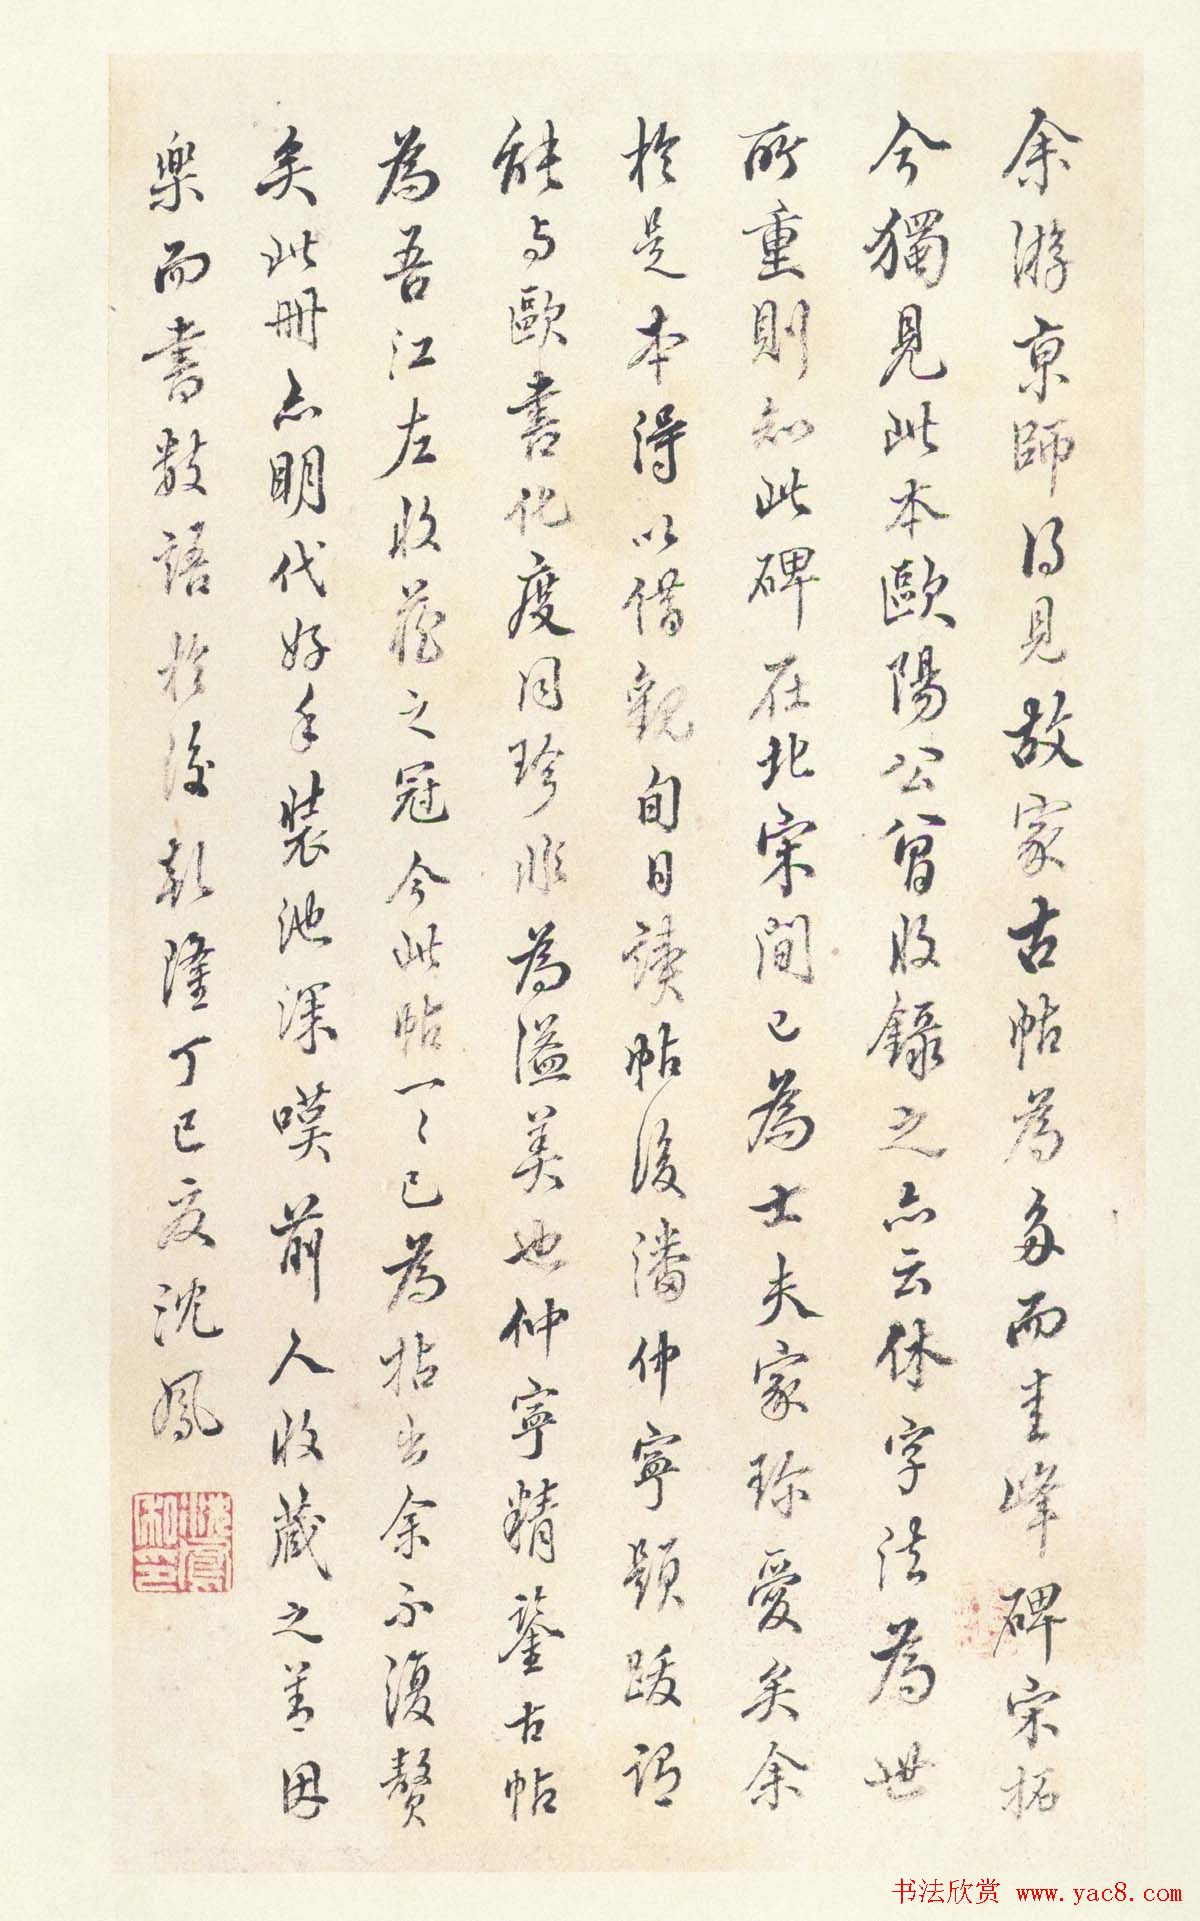 余游京師得見故家古帖為多而圭峰碑宋拓
今獨見此本歐陽公曾收錄之亦云休字法為世
所重則知此碑在北宋間已為士夫家珎愛矣余
於是本得以借觀旬日讀帖後潘仲寧題跋謂
能与歐書化度同珍非為溢美也仲寧精鑒古帖
為吾江左收藏之冠今此帖一々已為拈出余不復贅
矣此冊亦明代好手裝池深嘆前人收藏之善因
樂而書數語於後乾隆丁巳夏沈鳳
沈鳳私印
书法欣赏 www.yac8.com